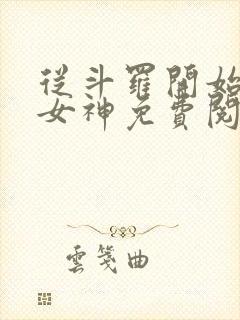 從斗羅開始
女神免費閱
雲箋曲